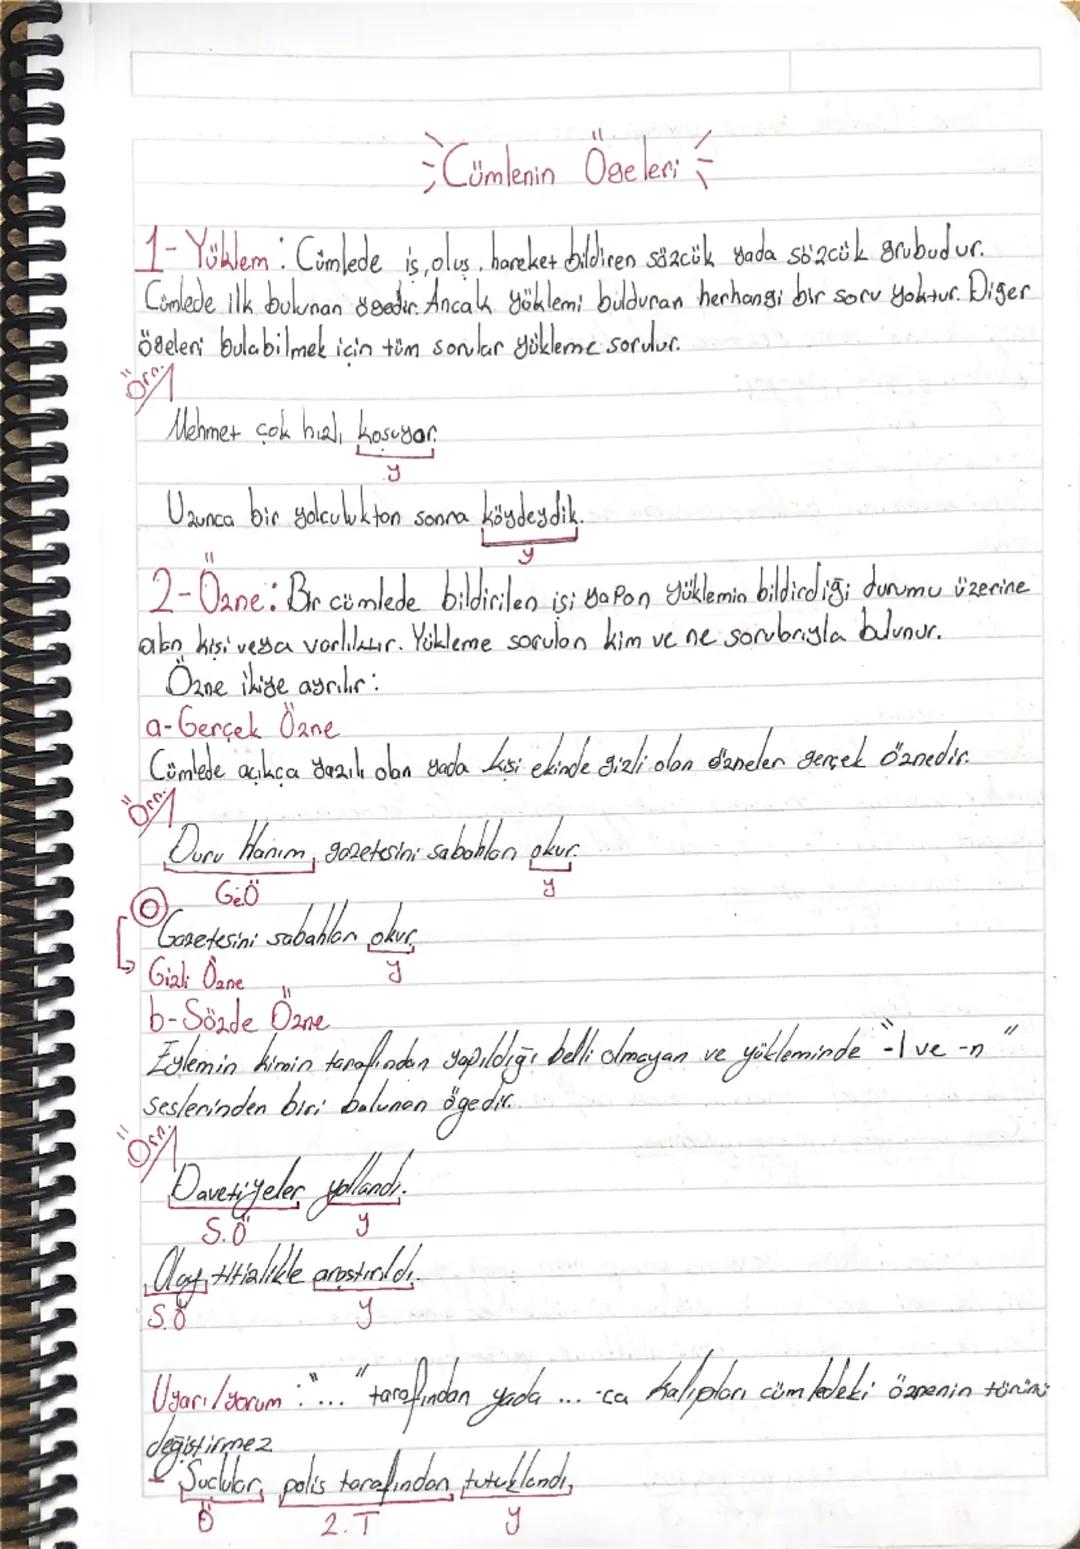 Cümlenin Ögeleri
1- Yüklem: Cümlede iş, oluş, hareket bildiren sözcük yada sözcük grubudur.
Cümlede ilk bulunan ögedir. Ancak yüklemi bulduran herhangi bir soru yoktur. Diğer
ögeleri bulabilmek için tüm sorular yükleme sorulur.
Örn.
Mehmet çok hızlı koşuyor.
y
Uzunca bir yolculuktan sonra köydeydik.
y
2- Özne: Bir cümlede bildirilen işi yapan yüklemin bildirdiği durumu üzerine
alan kişi veya varlıktır. Yükleme sorulan kim ve ne sorularıyla bulunur.
Özne ikiye ayrılır:
a- Gerçek Özne
Cümlede açıkça yazılı olan yada kişi ekinde gizli olan özneler gerçek öznedir.
Örn.
Duru Hanım, gazetesini sabahları okur.
G.Ö y
O
Gazetesini sabahları okur.
Gizli Özne y
b- Sözde Özne
Eylemin kimin tarafından yapıldığı belli olmayan ve yükleminde "-l ve -n"
seslerinden biri bulunan ögedir.
Örn.
Davetiyeler yollandı.
S.Ö y
Olay titizlikle araştırıldı.
S.Ö y
Uyarı/yorum: "..." tarafından yada ... -ca kalıpları cümledeki öznenin türünü
değiştirmez
- Suçlular, polis tarafından tutuklandı,
Ö 2.T y